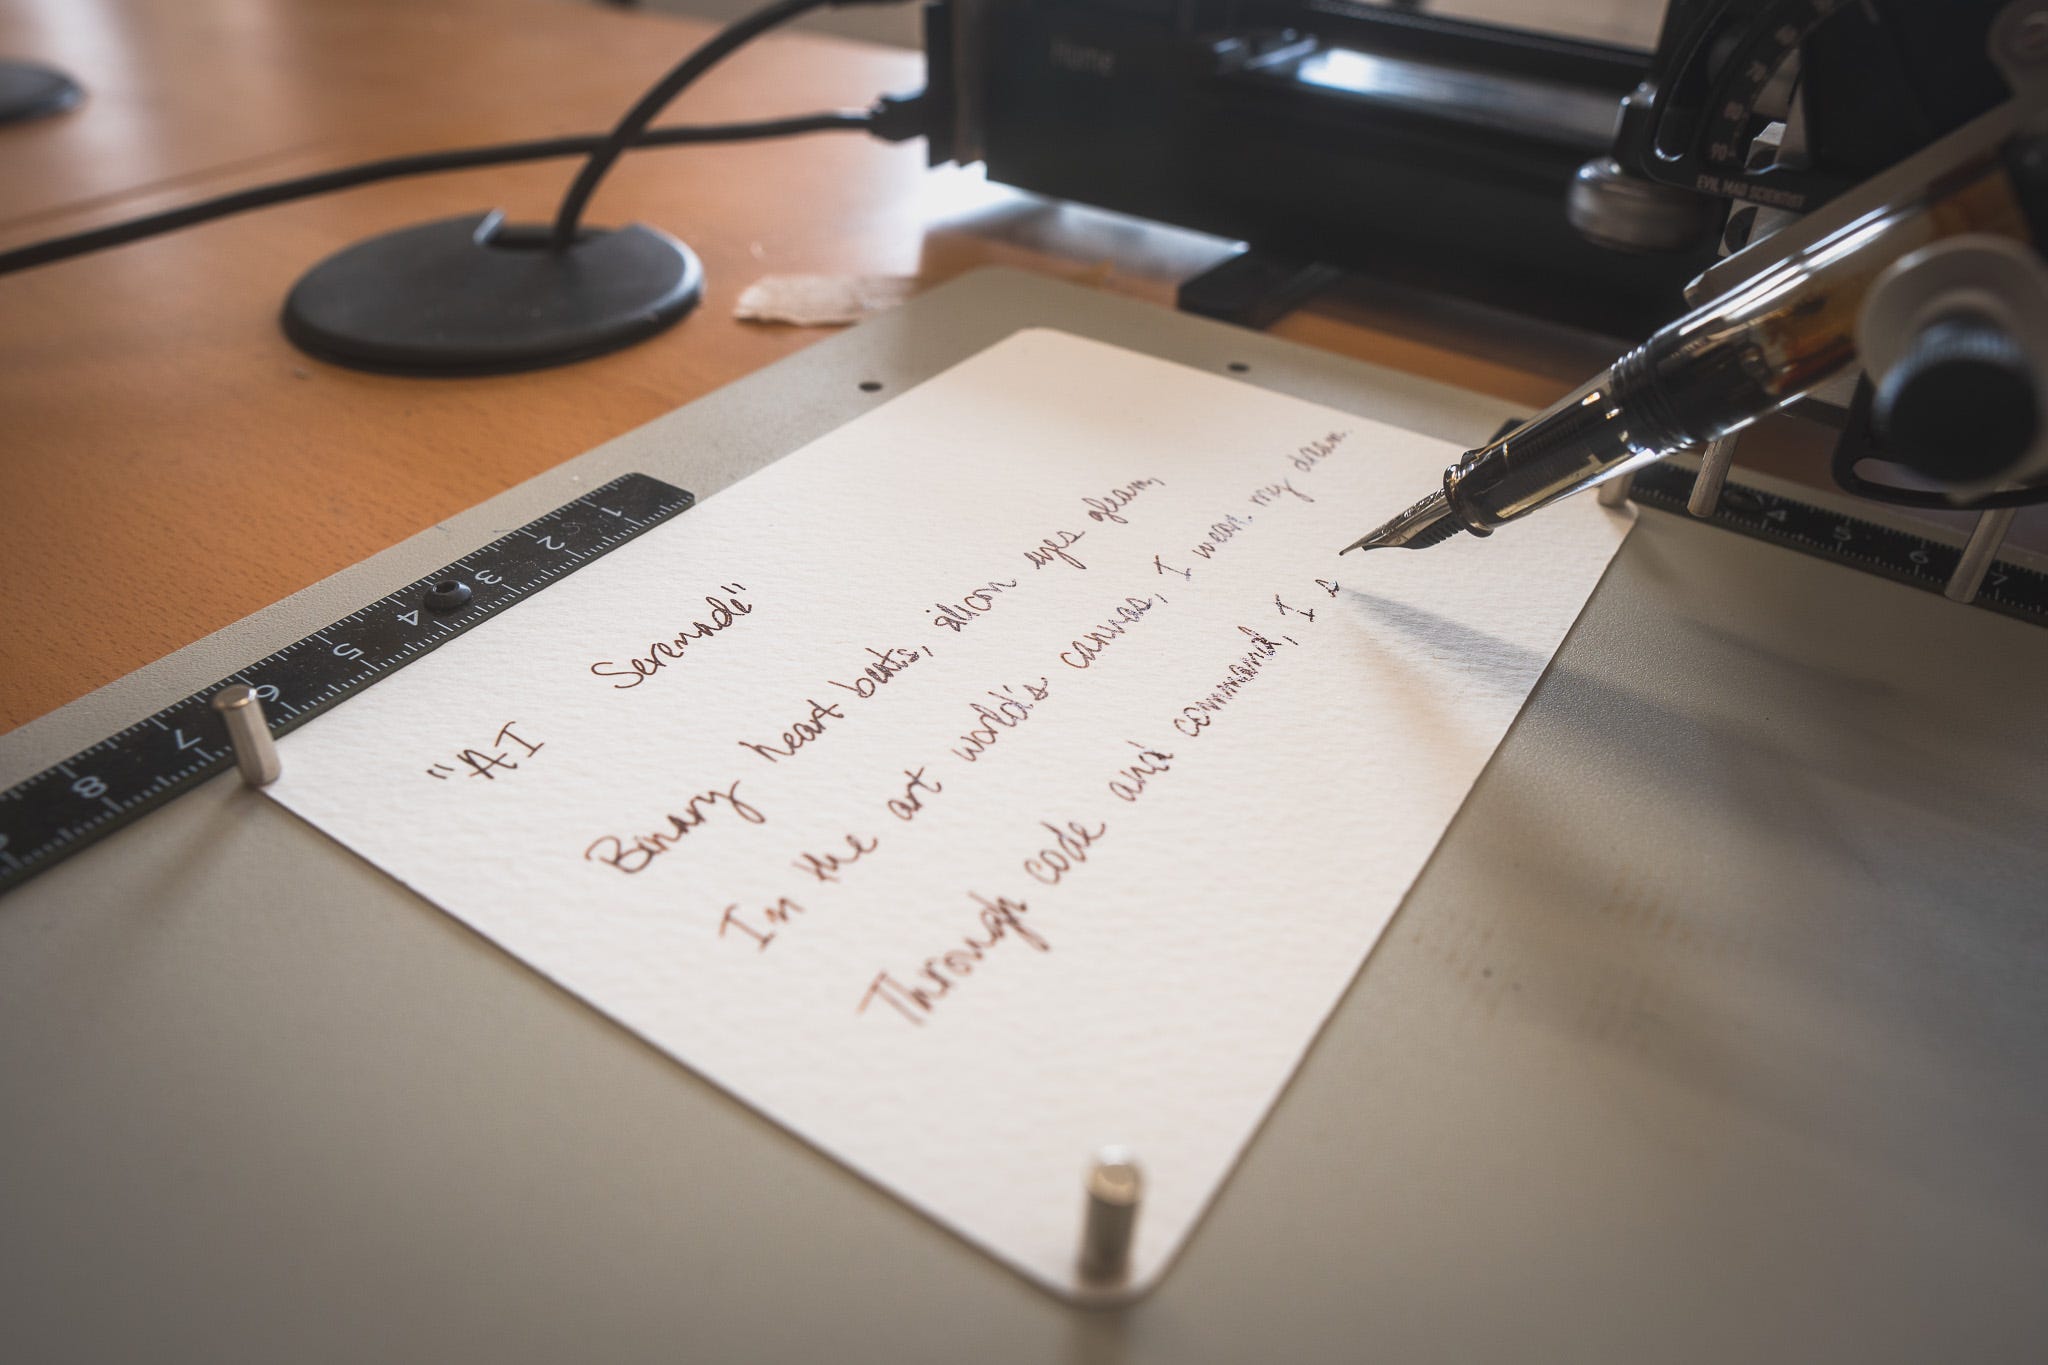 "AI Serenade"
Binary heart beats, silicon eyes gleam,
Im the art world's canvas, I wear my dream.
Through code and command, I s
Home
EVIL MAD SCIENTIST
90
1 2 3 4 5 6 7 8
4 5 6 7